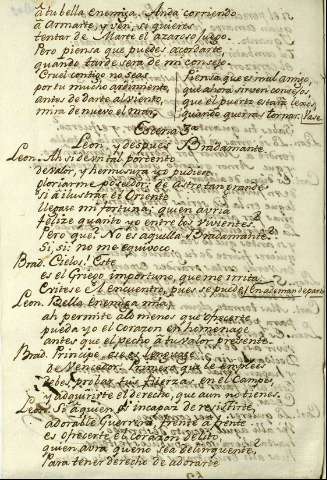 à tu bella enemiga. Anda corriendo
à Armarte, y ven, si quieres
tentar de Marte el azaroso juego.
Pero piensa que puedes acordarte
quando tarde sera de mi consejo.
Cruel contigo no seas
por tu mucho ardimiento,
antes de darte al viento,
mira de nuevo el mar,
Piensa que es mal amigo,
que ahora sirven consejos,
que el puerto estarà lexos,
quando querras tornar. Vase
Escena 3a
Leon, y despues Bradamante
Leon. Ah si de un tal portento
de valor, y hermosura yo pudiera
gloriarme poseedor, de Astro tan grande
si à ilustrar el Oriente
llegase mi fortuna; quien avria
felize quanto yo entre los vivientes?
Pero que? No es aquella Bradamante?
Si, si: no me equivoco.
Brad. Cielos! Este
es el Griego importuno, que me irrita.
Evitese el encuentro, pues se puede. En ademan de partir
Leon. Bella Enemiga mia,
ah permite alo menos que ofrecerte
pueda yo el corazon en homenage
antes que el pecho à tu valor presente.
Brad. Principe, ese es lenguage
de Vencedor. Primero que le emplees
debes probar tus fuerzas en el Campo,
y adquiriste el derecho, que aun no tienes.
Leon. Si à quien es incapaz de resistirte,
adorable Guerrera, frente à frente
es ofrecerte el corazon delito,
quien avra que no sea delinquente?
Para tener derecho de adorarte